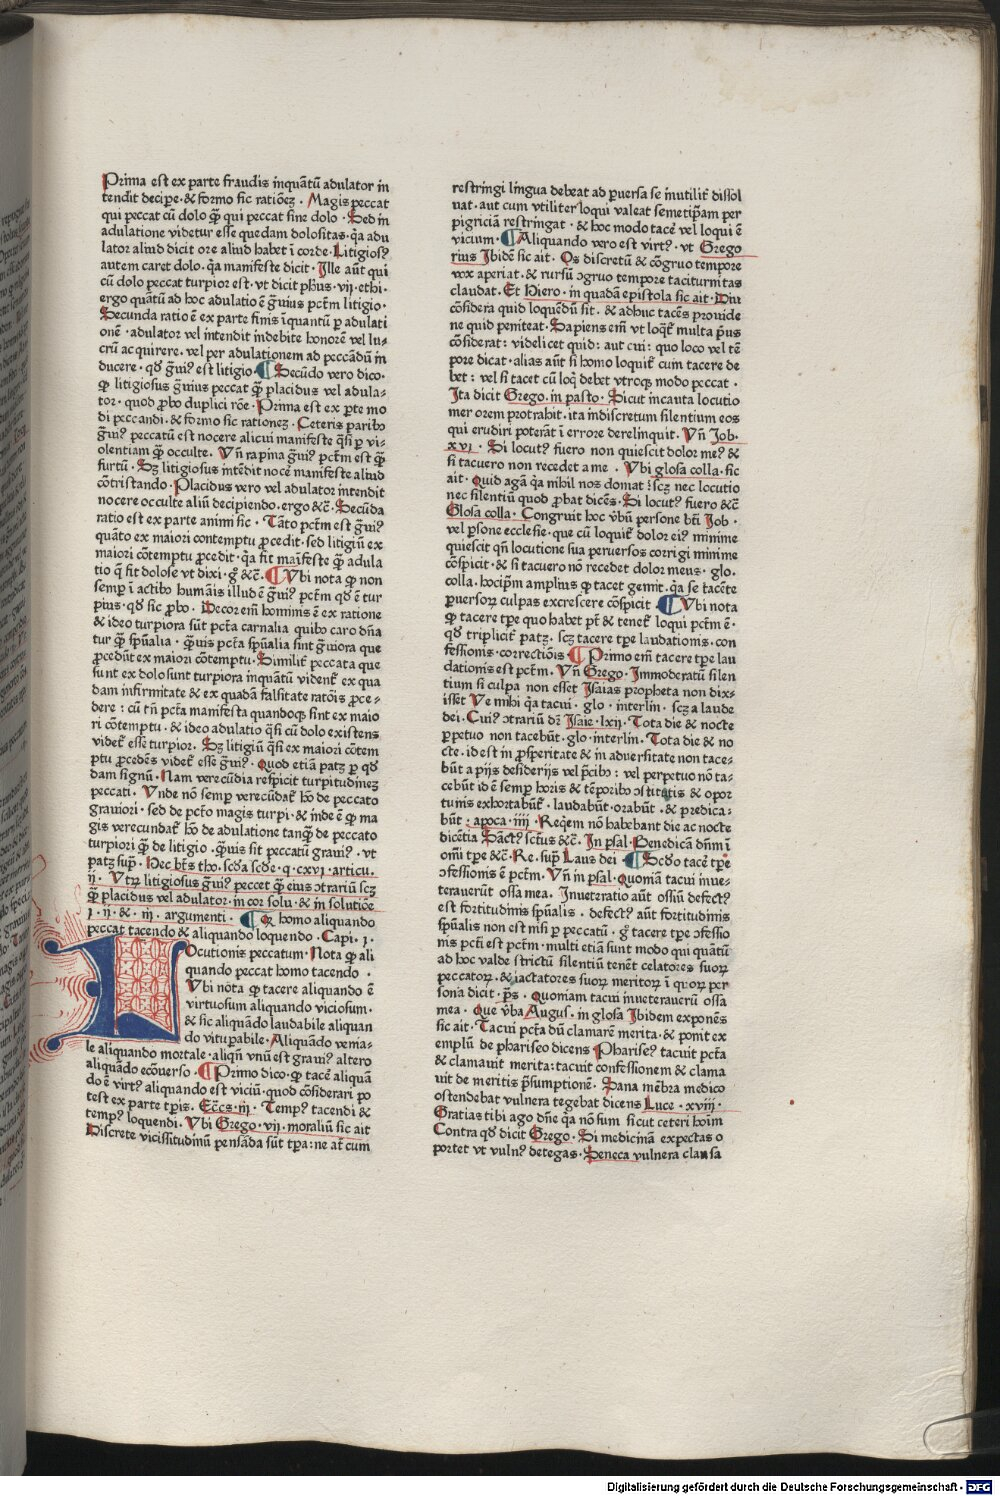 Prima est ex parte fraudis inquātū adulator in
tendit decipe·& formo sic rationeʒ· Magis peccat
qui peccat cū dolo ꝙ̄ qui peccat sine dolo·Sed in
adulatione videtur esse quedam dolositas·q̄a adu
lator aliud dicit ore aliud habet ī corde·Litigiosꝰ
autem caret dolo·q̄a manifeste dicit·Ille aūt qui
cū dolo peccat turpior est·vt dicit ph̄us·vij·ethi·
ergo quātū ad hoc adulatio ē g̃uius pct̄m litigio·
Secunda ratio ē ex parte finis īquantū p̱ adulati
onē·adulator vel intendit indebite honorē vel lu⸗
crū acquirere·vel per adulationem ad peccādū in
ducere·qd̄ g̃uiꝰ est litigio·¶Secūdo vero dico·
ꝙ litigiosus g̃uius peccat ꝙ̄ placidus vel adula⸗
tor·quod ꝓbo duplici rōe·Prima est ex p̱te mo
di peccandi·& formo sic rationeʒ·Ceteris paribꝰ
g̃uiꝰ peccatū est nocere alicui manifeste q̄si p̱ vi⸗
olentiam ꝙ̄ occulte· Vn̄ rapina g̃uiꝰ pct̄m est ꝙ̄
furtū·Sʒ litigiosus intēdit nocē manifeste aliud
cōtristando·Placidus vero vel adulator intendit
nocere occulte aliū decipiendo·ergo &c̄·Secūda
ratio est ex parte animi sic· Tāto pct̄m est g̃uiꝰ
quāto ex maiori contemptu ꝓcedit·sed litigiū ex
maiori cōtemptu ꝓcedit·q̄a fit maīfeste ꝙ̄ adula
tio q̄ fit dolose vt dixi·g̊ &c̄·¶Vbi nota ꝙ non
semp̱ ī actibꝰ humāis illud ē g̃uiꝰ pct̄m qd̄ ē tur
pius·qd̄ sic ꝓbo· Decor em̄ hominis ē ex ratione
& ideo turpiora sūt pct̄a carnalia quibꝰ caro dn̄a
tur ꝙ̄ spūalia · ꝙ̄uis pct̄a spūalia sint g̃uiora que
ꝓcedūt ex maiori cōtemptu·Similit̄ peccata que
sunt ex dolo sunt turpiora inquātū vident̄ ex qua
dam infirmitate & ex quadā falsitate ratōis ꝓce⸗
dere: cū tn̄ pct̄a manifesta quandoqꝫ sint ex maio
ri cōtemptu·& ideo adulatio q̄si cū dolo existens
videt̄ esse turpior· Sʒ litigiū q̄si ex maiori cōtem
ptu ꝓcedēs videt̄ esse g̃uiꝰ·Quod etiā patʒ p̱ qd̄
dam signū·Nam verecūdia respicit turpitudineʒ
peccati·Vnde nō semp̱ verecūdat̄ hō de peccato
grauiori·sed de pct̄o magis turpi·& inde ē ꝙ ma
gis verecundat̄ hō de adulatione tanꝙ̄ de peccato
turpiori ꝙ̄ de litigio·ꝙ̄uis sit peccatū grauiꝰ·vt
patʒ sup̱·Hec bt̄s tho·scd̄a scd̄e·q·cxvi·articu·
ij· Vtꝝ litigiosus g̃uiꝰ peccet ꝙ̄ eius ɔtrariū scʒ
ꝙ̄ placidus vel adulator·in cor solu·& in solutiōe
i·ii·&·iij·argumenti·¶Qꝫ homo aliquando
peccat tacendo & aliquando loquendo·Capi·i·
Locutionis peccatum·Nota ꝙ ali
quando peccat homo tacendo ·
Vbi nota ꝙ tacere aliquando ē
virtuosum aliquando viciosum·
& sic aliquādo laudabile aliquan
do vituꝑabile·Aliquādo venia⸗
le aliquando mortale·aliqn̄ vnū est grauiꝰ altero
aliquādo ecōuerso·¶Primo dico·ꝙ tacē aliquā
do ē virtꝰ aliquando est viciū·quod cōsiderari po
test ex parte tp̄is·Ecc̄s·iij·Tempꝰ tacendi &
tempꝰ loquendi·Vbi Grego·vij·moraliū sic ait
Discrete vicissitudinū pensāda sūt tp̄a:ne aūt cum
restringi lingua debeat ad ꝑuersa se inutilit̄ dissol
uat·aut cum vtiliter loqui valeat semetip̄am per
pigriciā restringat·& hoc modo tacē vel loqui ē
vicium·¶Aliquando vero est virtꝰ·vt Grego
rius Ibidē sic ait·Os discretū & cōgruo tempore
vox aperiat·& rursū ɔgruo tempore taciturnitas
claudat·Et Hiero·in quadā epistola sic ait·Diu
cōsidera quid loquēdū sit·& adhuc tacēs prouide
ne quid peniteat·Sapiens em̄ vt loqt̄ multa p̄us
cōsiderat: videlicet quid: aut cui: quo loco vel tē
pore dicat·alias aūt si homo loquit̄ cum tacere de
bet: vel si tacet cū loq̄ debet vtroqꝫ modo peccat·
Ita dicit Grego·in pasto·Sicut incauta locutio
in errorem protrahit·ita indiscretum silentium eos
qui erudiri poterāt ī errore derelinquit·Vn̄ Iob·
xvi·Si locutꝰ fuero non quiescit dolor meꝰ &
si tacuero non recedet a me ·Vbi glosa colla·sic
ait·Quid agā q̄a nihil nos domat: scʒ nec locutio
nec silentiū quod ꝓbat dicēs·Si locutꝰ fuero &c̄
Glosa colla·Congruit hoc vb̄ū persone bt̄i Iob·
vel ꝑsone ecclesie·que cū loquit̄ dolor eiꝰ minime
quiescit qn̄ locutione sua peruersos corrigi minime
cōspicit·& si tacuero nō recedet dolor meus·glo·
colla·hoc ip̄m amplius ꝙ tacet gemit·q̄a se tacēte
ꝑuersoꝝ culpas excrescere cōspicit·¶Vbi nota
ꝙ tacere tp̄e quo habet pt̄ & tenet̄ loqui pct̄m ē·
qd̄ triplicit̄ patʒ·scʒ tacere tp̄e laudationis·con
fessionis·correctiōis·¶Primo em̄ tacere tp̄e lau
dationis est pct̄m·Vn̄ Grego·Immoderatū silen
tium si culpa non esset Isaias propheta non dix⸗
isset Ve mihi q̄a tacui·glo·interlin·scʒ a laude
dei·Cuiꝰ ɔtrariū dʒ Isaie·lxij·Tota die & nocte
ꝑpetuo non tacebūt·glo·interlin·Tota die & no
cte·id est in ꝓsperitate & in aduersitate non tace⸗
būt a pijs desiderijs vel p̄cibꝰ: vel perpetuo nō ta⸗
cebūt id ē semp̱ horis & tēporibꝰ ɔstitutis & opor
tunis exhortabūt̄·laudabūt·orabūt·& predica⸗
būt: apoca·iiij·Reqem̄ nō habebant die ac nocte
dicētia Sāctꝰ sctūs &c̄·In psal·Benedicā dn̄m ī
omī tp̄e &c̄·Re·sup̱ Laus dei·¶Scd̄o tacē tp̄e
ɔfessionis ē pct̄m·Vn̄ in psal·Quoniā tacui inue⸗
terauerūt ossa mea·Inueteratio aūt ossiū defectꝰ
est fortitudinis spūalis·defectꝰ aūt fortitudinis
spūalis non est nisi p̱ peccatū·g̊ tacere tp̄e ɔfessio
nis pct̄i est pct̄m·multi etiā sunt modo qui quātū
ad hoc valde strictū silentiū tenēt celatores suoꝝ
peccatoꝝ·& iactatores suoꝝ meritoꝝ ī quoꝝ per
sona dicit·p̄s·Quoniam tacui inueterauerū ossa
mea·Que vb̄a Augus·in glosa Ibidem exponēs
sic ait·Tacui pct̄a dū clamarē merita·& ponit ex
emplū de phariseo dicens Phariseꝰ tacuit pct̄a
& clamauit merita:tacuit confessionem & clama
uit de meritis p̄sumptionē·Sana mēbra medico
ostendebat vulnera tegebat dicens Luce·xviij·
Gratias tibi ago dn̄e q̄a nō sum sicut ceteri hoīm
Contra qd̄ dicit Grego·Si medicinā expectas o
portet vt vulnꝰ detegas·Seneca vulnera clausa
Digitalisierung gefördert durch die Deutsche Forschungsgemeinschaft - DFG